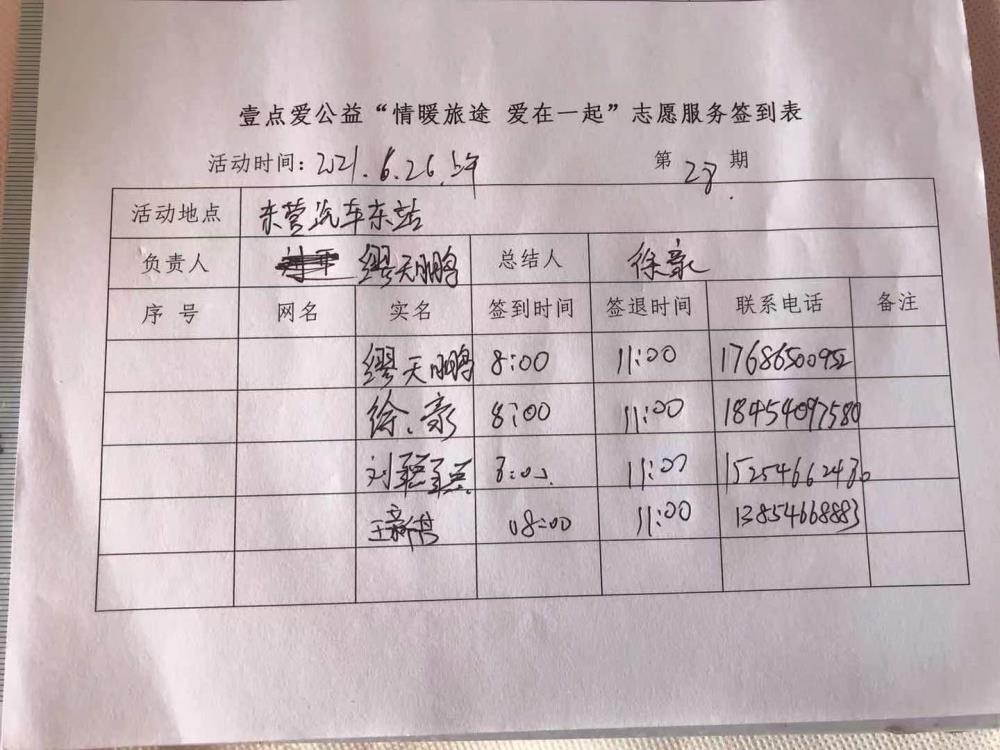 壹点爱公益“情暖旅途 爱在一起”志愿服务签到表
活动时间：2021.6.26.上午 第 28. 期
活动地点 东营汽车东站
负责人 缪天鹏 总结人 徐豪
序号 网名 实名 签到时间 签退时间 联系电话 备注
缪天鹏 8:00 11:00 17686500952
徐豪 8:00 11:00 18454097580
刘 8:00 11:00 15254662430
王 08:00 11:00 13854668883